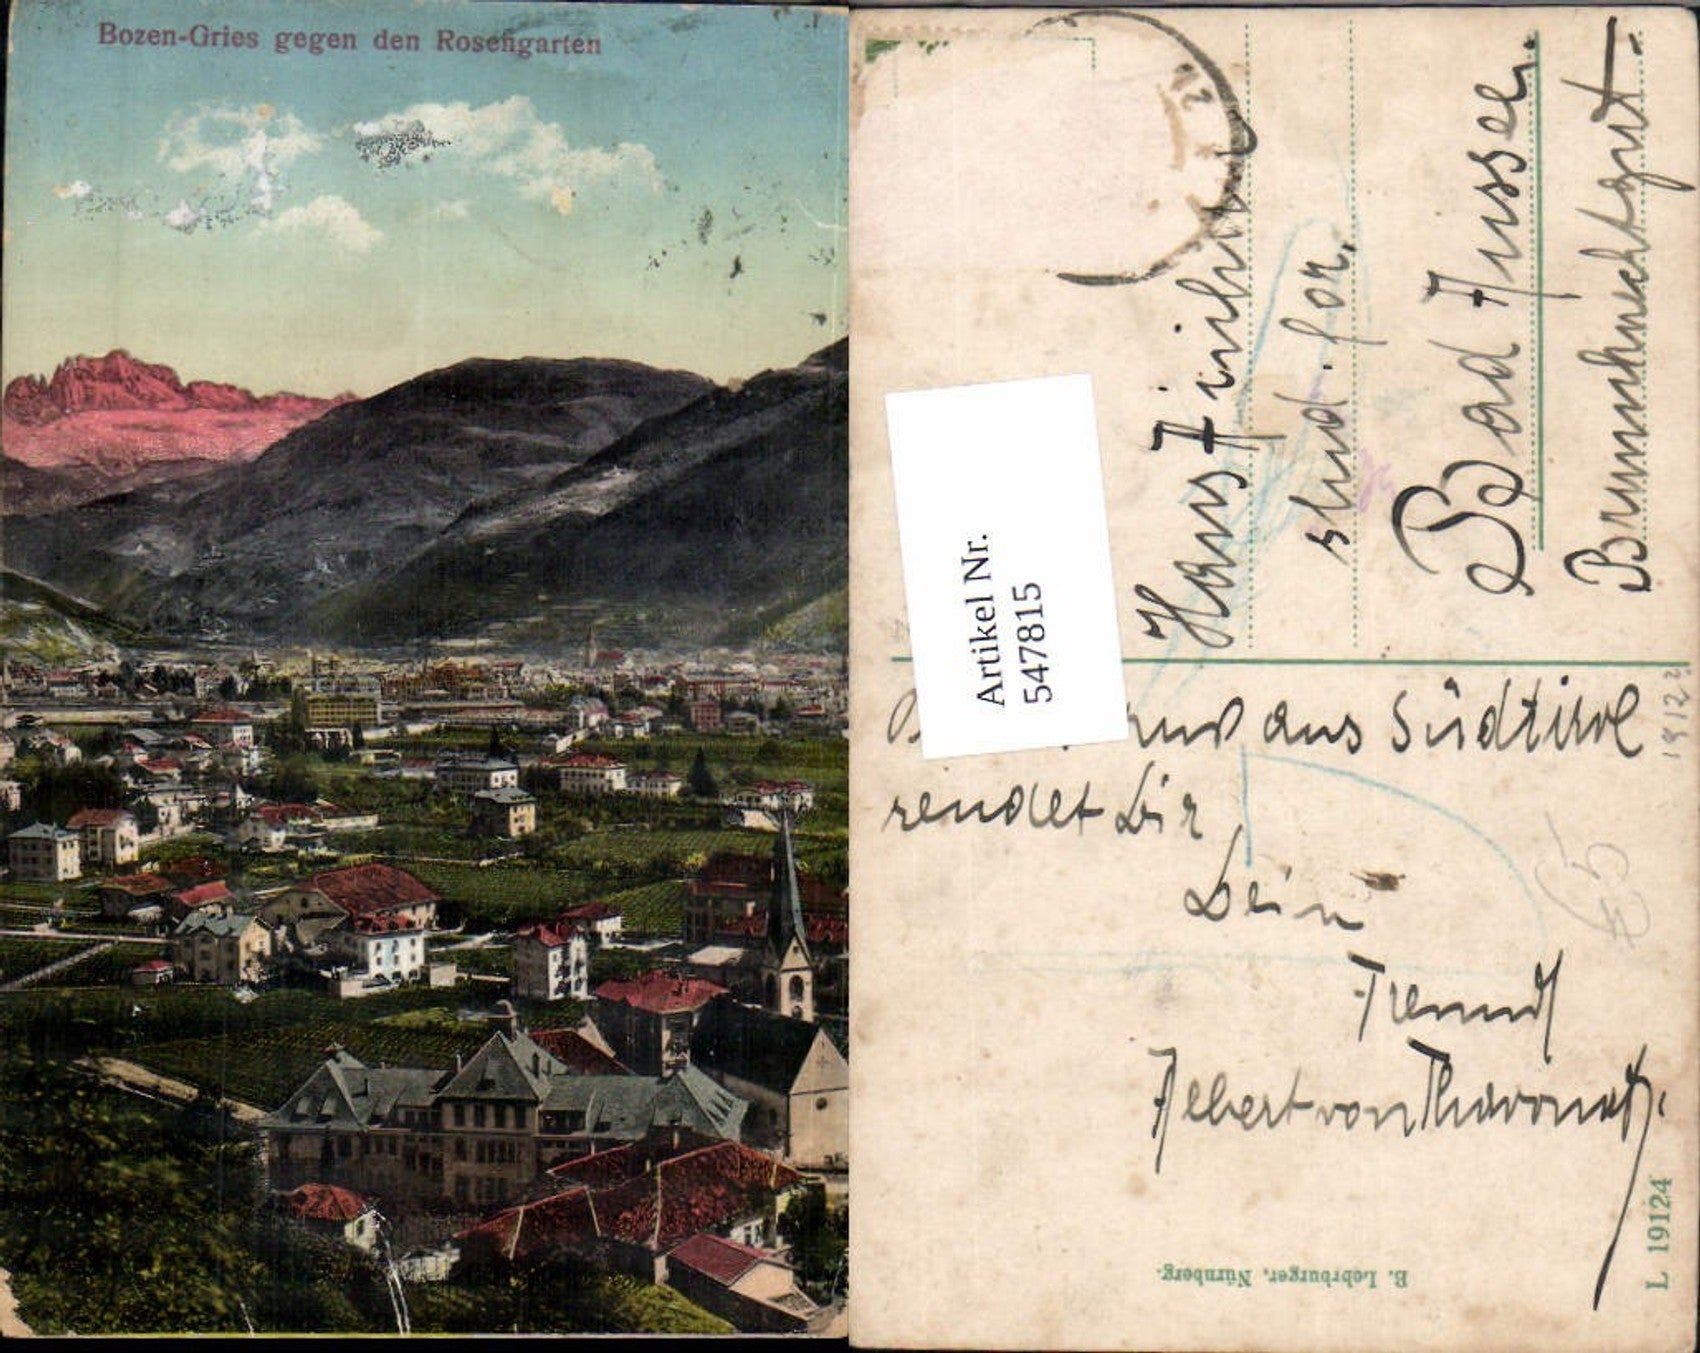 Bozen-Gries gegen den Rosengarten
Hans
stud. for.
Bad Aussee.
Brunnknechtgut.
Artikel Nr.
5478815
aus Südtirol
sendet Dir
Dein
Freund
Albert von
1912?
€5
B. Lehrburger, Nürnberg.
L 19124